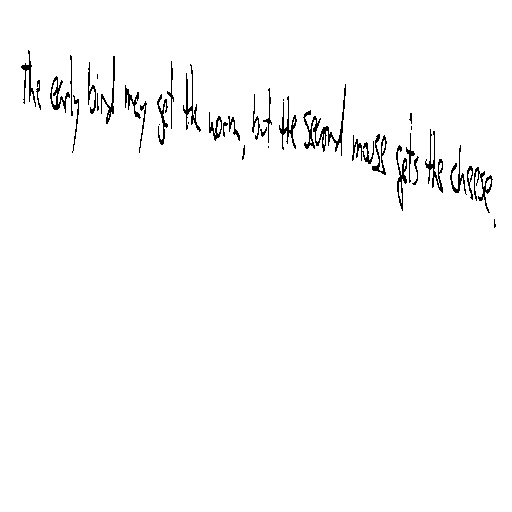 the early bird may get the worm, but the second mouse gets the cheese.